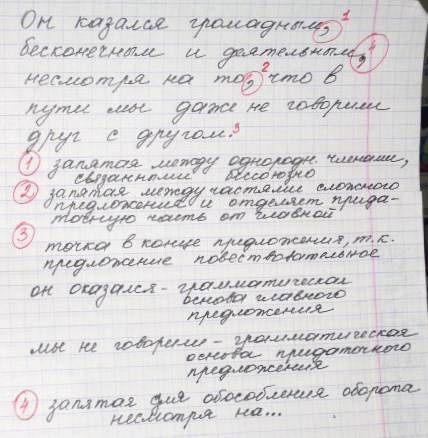 Он казался громадным, 1
бесконечным и деятельным, 4
несмотря на то, 2 что в
пути мы даже не говорили
друг с другом. 3
1 запятая между однородн. членами,
связанными бессоюзно
2 запятая между частями сложного
предложения и отделяет прида-
точную часть от главной
3 точка в конце предложения, т.к.
предложение повествовательное
он оказался - грамматическая
основа главного
предложения
мы не говорили - грамматическая
основа придаточного
предложения
4 запятая для обособления оборота
несмотря на...